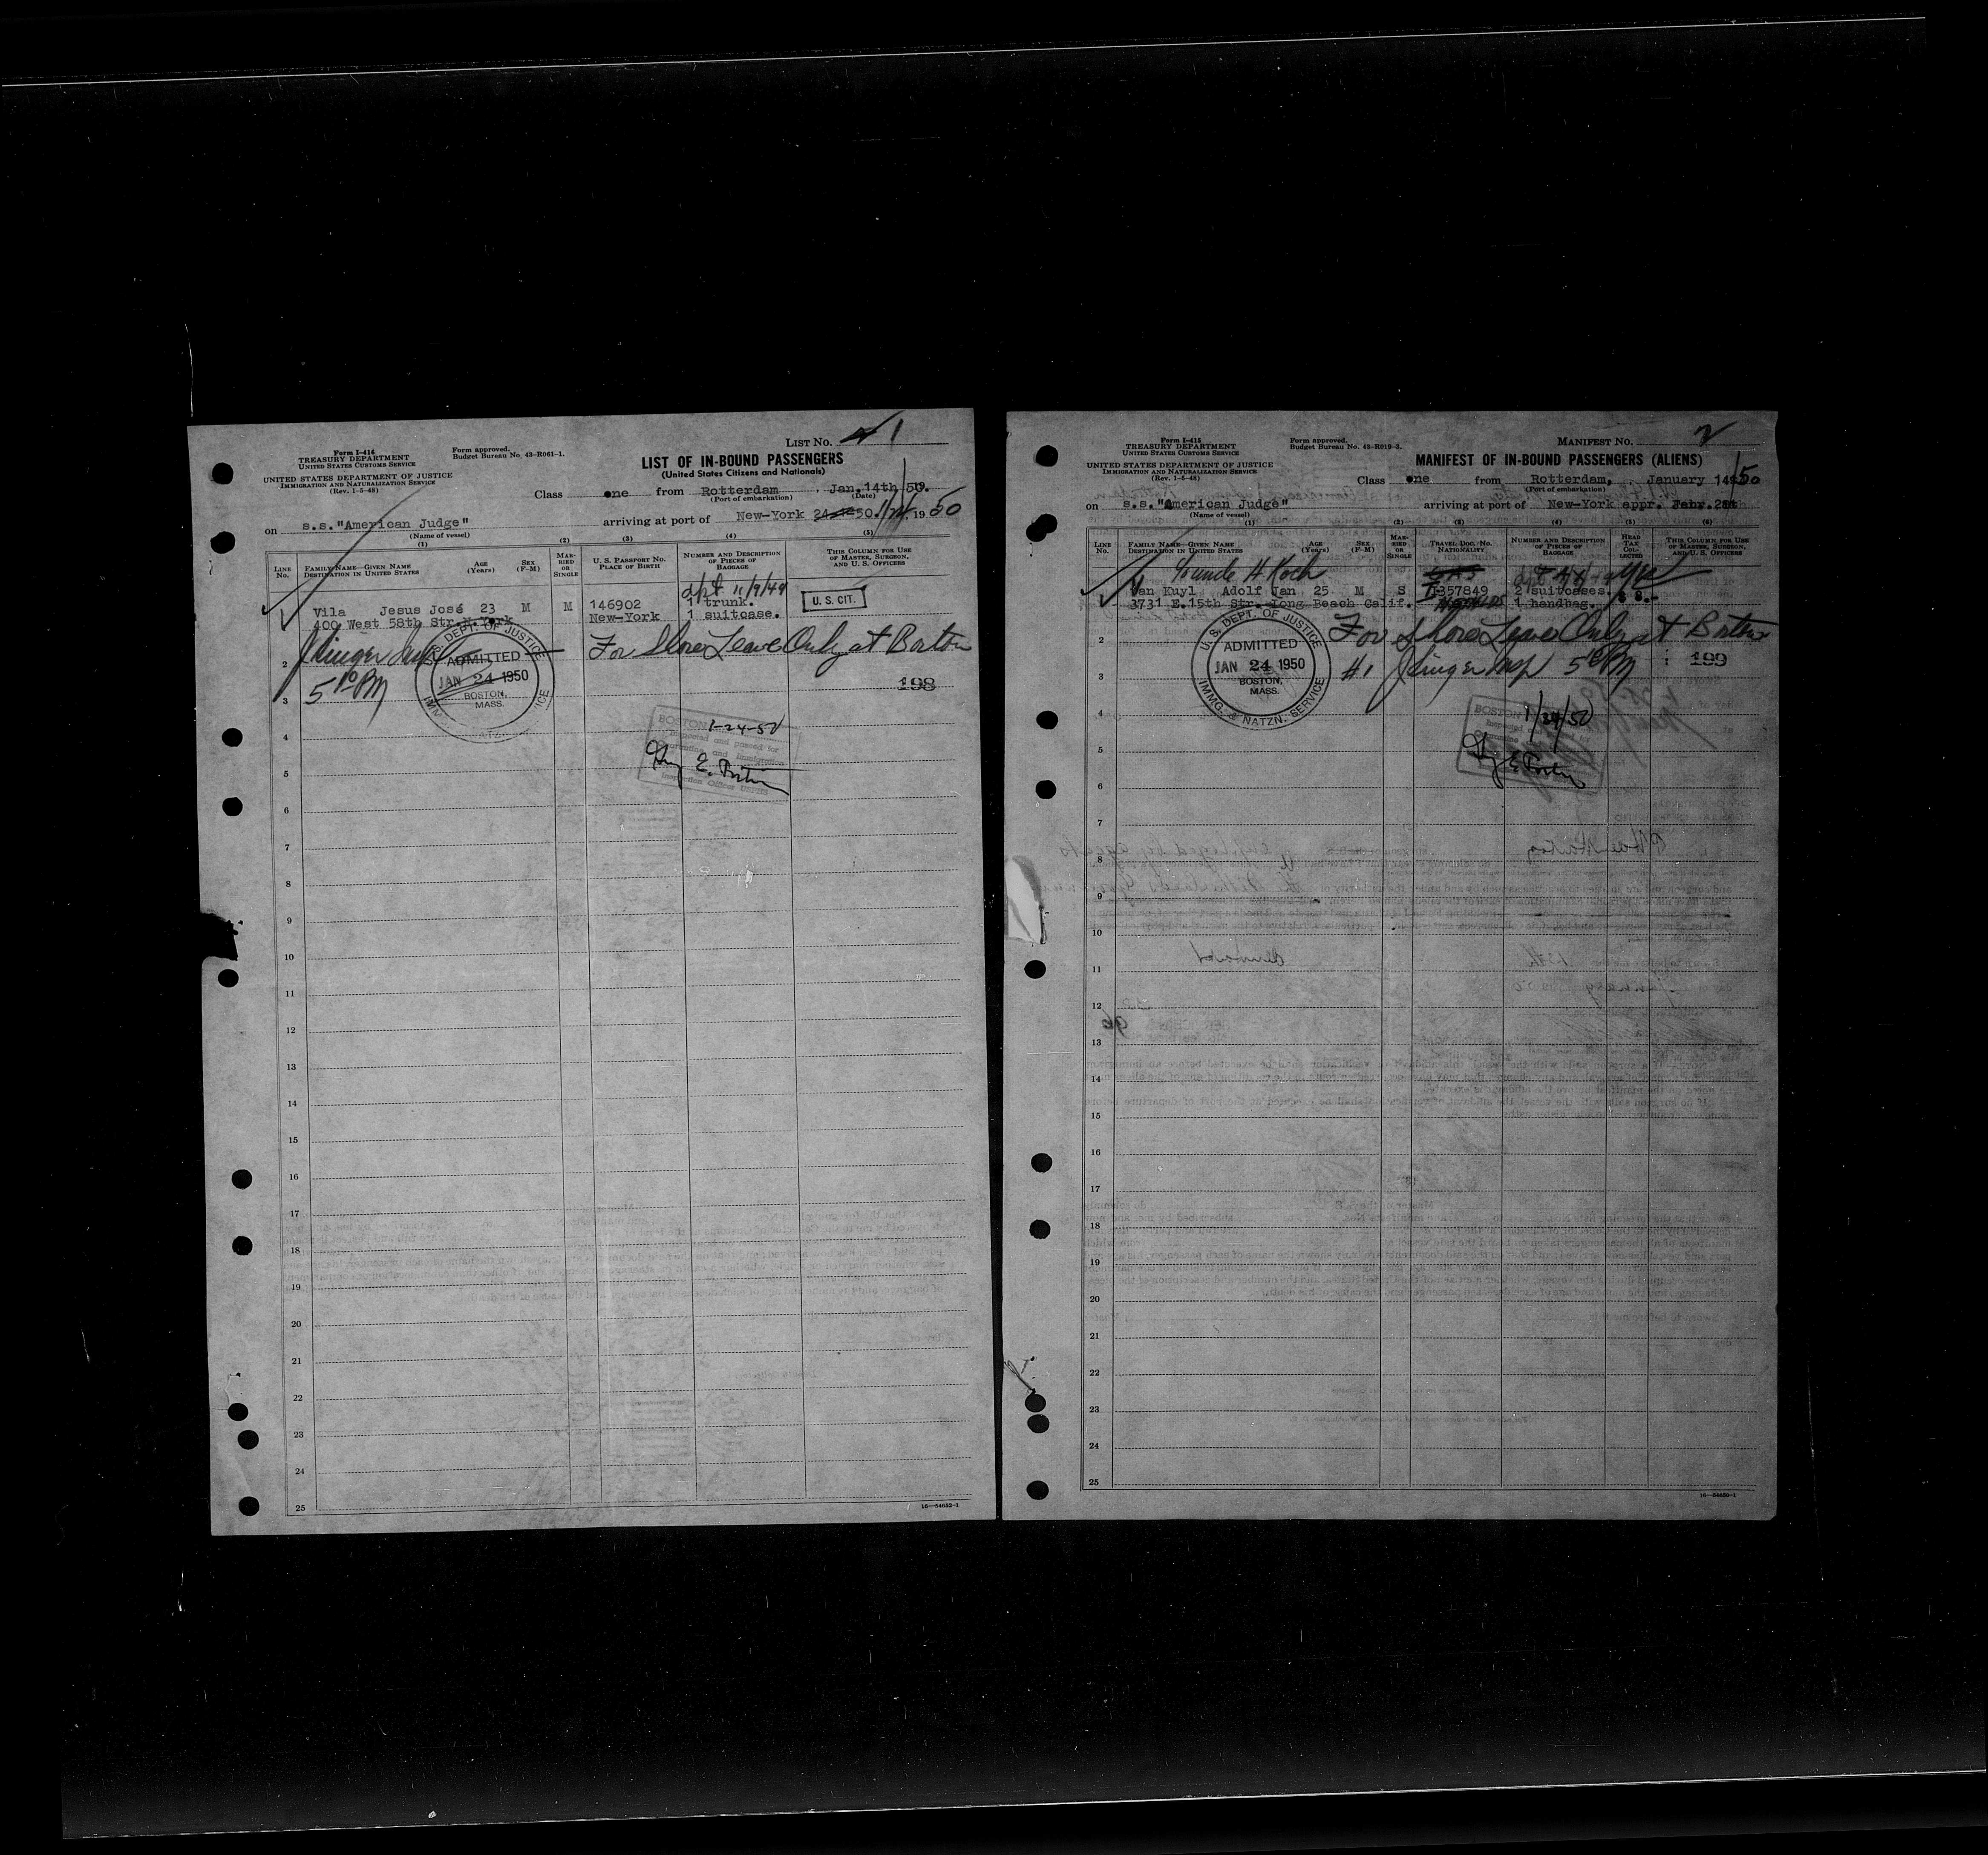 LIST No. 1
Form I-416
TREASURY DEPARTMENT
UNITED STATES CUSTOMS SERVICE
Form approved.
Budget Bureau No. 43-R061-1.
UNITED STATES DEPARTMENT OF JUSTICE
IMMIGRATION AND NATURALIZATION SERVICE
(Rev. 1-5-48)
LIST OF IN-BOUND PASSENGERS
(United States Citizens and Nationals)
Class one from Rotterdam , Jan. 14th 50.
(Port of embarkation) (Date)
on s.s. "American Judge" arriving at port of New-York 1950
(Name of vessel)
(1) (2) (3) (4) (5)
LINE No.
FAMILY NAME—GIVEN NAME
DESTINATION IN UNITED STATES
AGE (Years)
SEX (F-M)
MARRIED OR SINGLE
U. S. PASSPORT NO.
PLACE OF BIRTH
NUMBER AND DESCRIPTION OF PIECES OF BAGGAGE
THIS COLUMN FOR USE OF MASTER, SURGEON, AND U. S. OFFICERS
11/9/49
Vila Jesus José 23 M M 146902 1 trunk. U. S. CIT.
400 West 58th Str. N.York New-York 1 suitcase.
For Shore Leave Only at Boston
5 10 PM
U. S. DEPT. OF JUSTICE
ADMITTED
JAN 24 1950
BOSTON, MASS.
198
BOSTON
1-24-50
Inspected and passed for
Quarantine and Immigration
2
3
4
5
6
7
8
9
10
11
12
13
14
15
16
17
18
19
20
21
22
23
24
25
16—54652-1
MANIFEST No. 2
Form I-415
TREASURY DEPARTMENT
UNITED STATES CUSTOMS SERVICE
Form approved.
UNITED STATES DEPARTMENT OF JUSTICE
IMMIGRATION AND NATURALIZATION SERVICE
(Rev. 1-5-48)
MANIFEST OF IN-BOUND PASSENGERS (ALIENS)
Class one from Rotterdam, January
(Port of embarkation)
on s.s. "American Judge" arriving at port of New-York appr.
(Name of vessel)
(1) (2) (3) (4) (5) (6)
LINE No.
FAMILY NAME—GIVEN NAME
DESTINATION IN UNITED STATES
AGE (Years)
SEX (F-M)
MARRIED OR SINGLE
TRAVEL DOC. NO.
NATIONALITY
NUMBER AND DESCRIPTION OF PIECES OF BAGGAGE
HEAD TAX COLLECTED
THIS COLUMN FOR USE OF MASTER, SURGEON, AND U. S. OFFICERS
H Koch
Van Kuyl Adolf Jan 25 M S 357849 2 suitcases.
3731 E.15th Str. Long Beach Calif. 1 handbag.
For Shore Leave Only at Boston
U. S. DEPT. OF JUSTICE
ADMITTED
JAN 24 1950
BOSTON, MASS.
IMMG. & NATZN. SERVICE
#1 5 10 PM
199
1/24/50
2
3
4
5
6
7
8
9
10
11
12
13
14
15
16
17
18
19
20
21
22
23
24
25